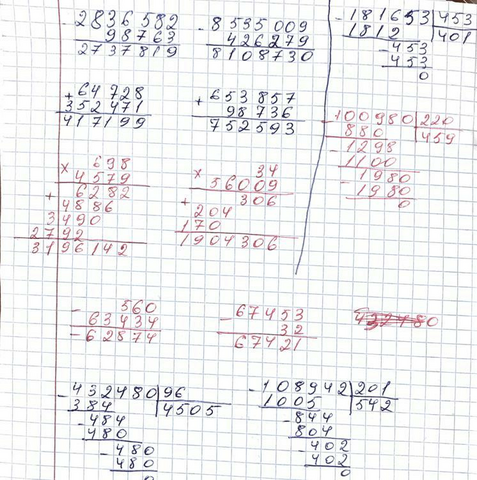 2836582
98763
2737819
- 8535009
426279
8108730
- 181653 | 453
1812 | 401
- 453
453
0
+ 64728
352471
417199
+ 653857
98736
752593
- 100980 | 220
880 | 459
- 1298
1100
- 1980
1980
0
× 698
4579
+ 6282
4886
3490
2792
3196142
× 34
56009
+ 306
204
170
1904306
- 560
63434
- 62874
- 67453
32
67421
- 432480 | 96
384 | 4505
- 484
480
- 480
480
0
- 108942 | 201
1005 | 542
- 844
804
- 402
402
0